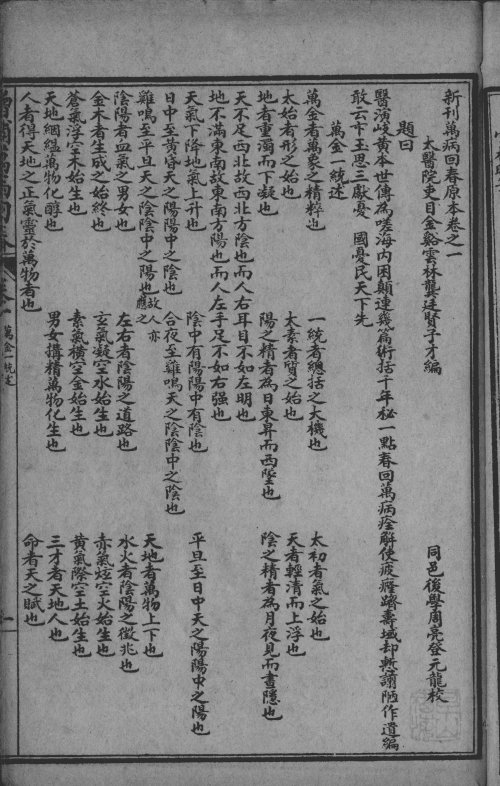 新刊萬病回春原本卷之一
太醫院吏目金谿雲林龔廷賢子才編
同邑後學周亮登元龍校
題曰
醫演岐黃本世傳為嗟海內困顛連幾篇術括千年秘一點春回萬病痊解使疲癃躋壽域却慙謭陋作遺編
敢云卞玉思三獻憂國憂民天下先
萬金一統述
萬金者萬象之精粹也
一統者總括之大機也
太初者氣之始也
太始者形之始也
太素者質之始也
天者輕清而上浮也
地者重濁而下凝也
陽之精者為日東昇而西墜也
陰之精者為月夜見而晝隱也
天不足西北故西北方陰也而人右耳目不如左明也
地不滿東南故東南方陽也而人左手足不如右强也
天氣下降地氣上升也
陰中有陽陽中有陰也
平旦至日中天之陽陽中之陽也
日中至黃昏天之陽陽中之陰也
合夜至雞鳴天之陰陰中之陰也
雞鳴至平旦天之陰陰中之陽也故人亦應之
陰陽者血氣之男女也
左右者陰陽之道路也
天地者萬物上下也
水火者陰陽之徵兆也
金木者生成之始終也
玄氣凝空水始生也
赤氣炫空火始生也
蒼氣浮空木始生也
素氣橫空金始生也
黃氣際空土始生也
天地絪縕萬物化醇也
男女搆精萬物化生也
三才者天地人也
人者得天地之正氣靈於萬物者也
命者天之賦也
卷一
萬金一統述
一